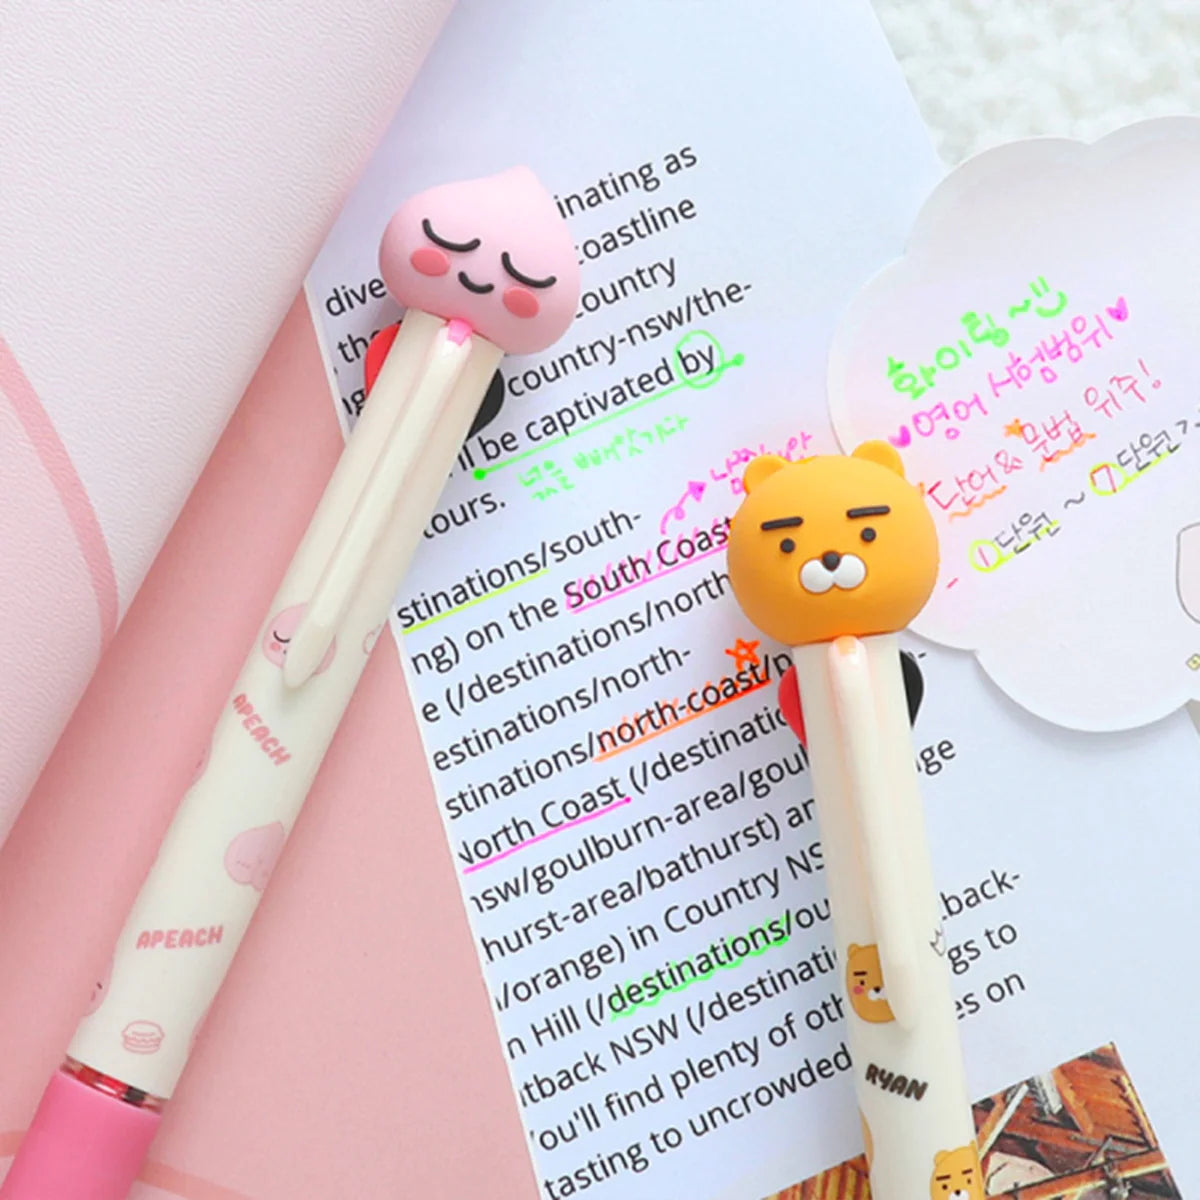 inating as
dive
oastline
the
ountry
country-nsw/the-
'll be captivated by
넋을 빼앗기다
tours.
stinations/south-
ng) on the South Coast
e (/destinations/north
estinations/north-
stinations/north-coast/n
North Coast (/destinatio
nsw/goulburn-area/goul
nge
hurst-area/bathurst) an
/orange) in Country NS
n Hill (/destinations/ou
back-
tback NSW (/destinati
gs to
ou'll find plenty of oth
es on
tasting to uncrowded
화이팅~
영어 시험범위
단어& 문법 위주!
- 1단원 ~ 7단원
APEACH
APEACH
RYAN